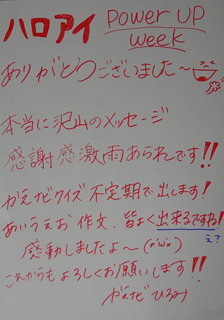 ハロアイ POWER UP
WEEK
ありがとうございました〜
本当に沢山のメッセージ
感謝感激雨あられです!!
かえビクイズ不定期で出します!
あいうえお作文、皆よく出来るですね!
え?
感動しましたよ〜(*'ω'*)
これからもよろしくお願いします!!
かえビひろみ